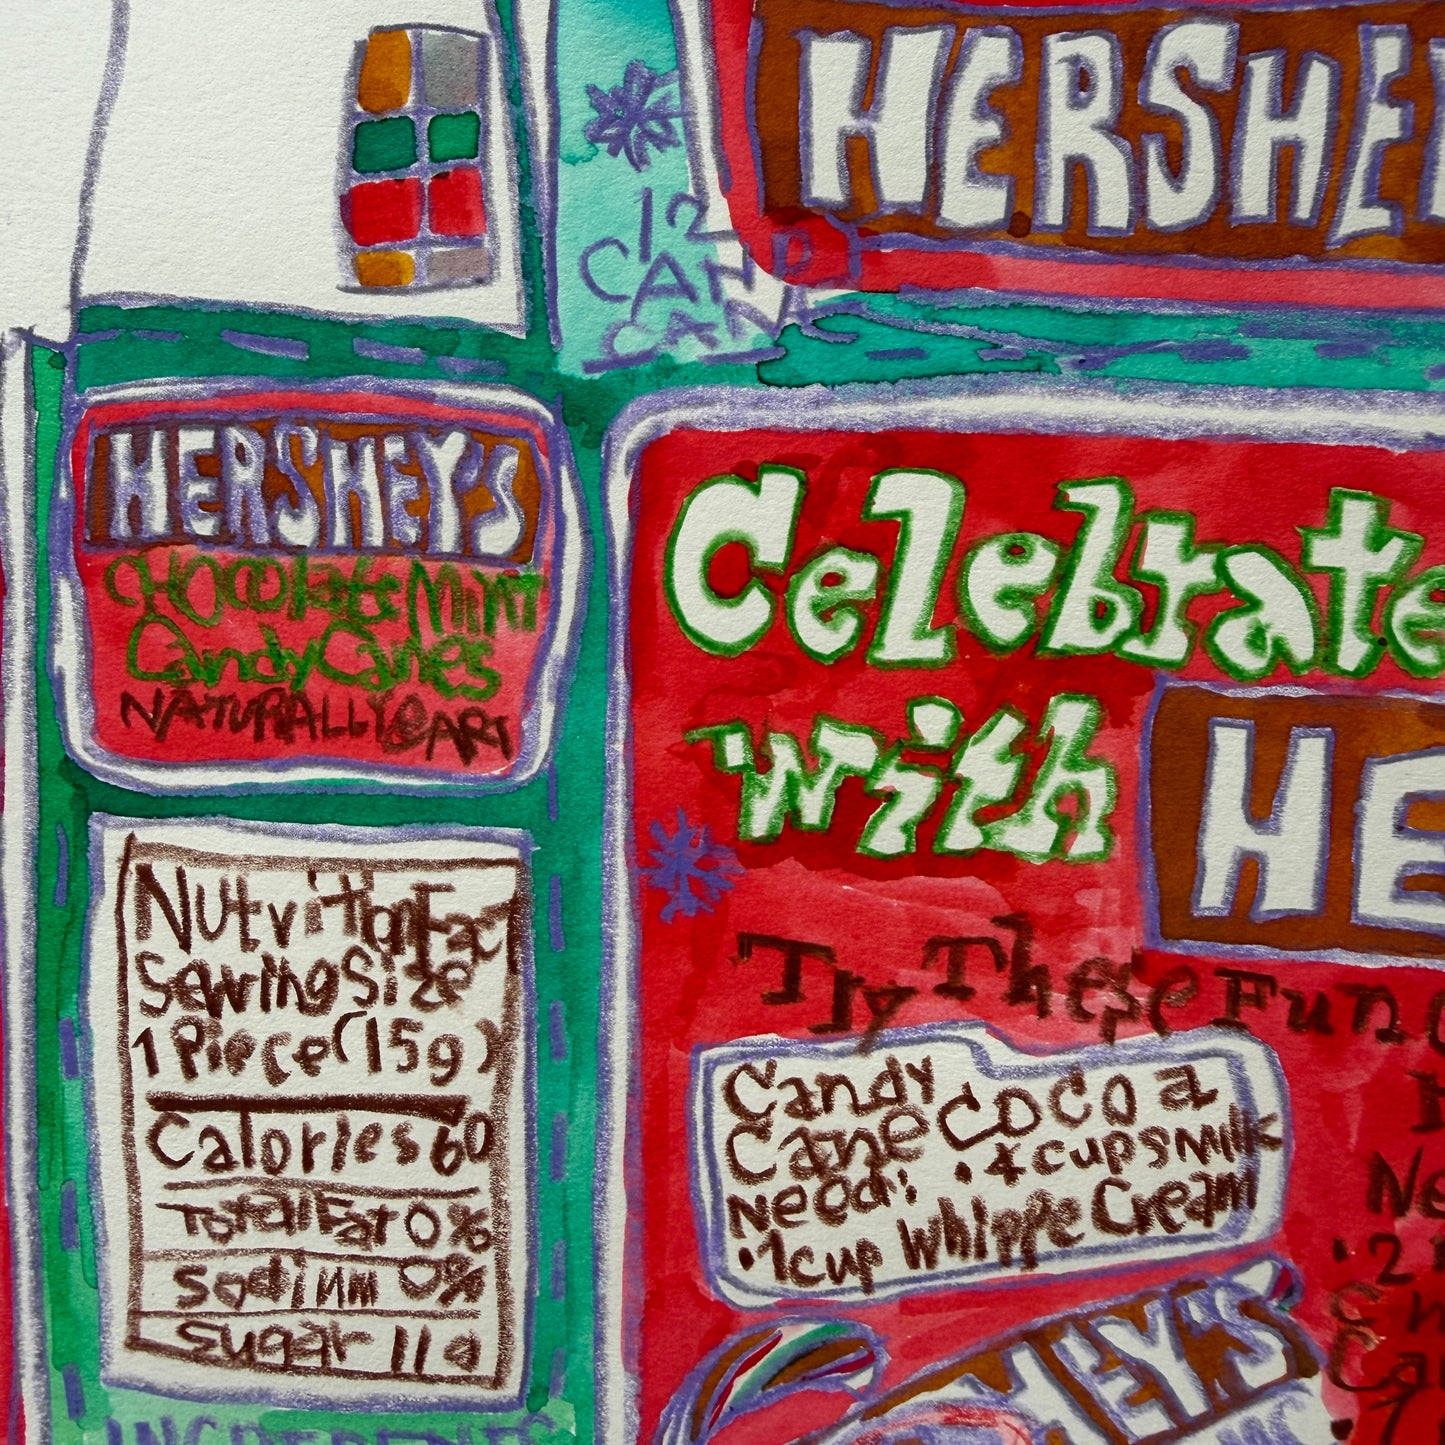 12
CANDY
CANE
HERSHEY
HERSHEY'S
CHocolate MiNT
Candy Canes
NATURALLY & ART
Nutrition Fact
Serving Size
1 Piece (15g)
Calories 60
Total Fat 0%
Sodium 0%
Sugar 11g
INGREDIENTS
Celebrate
with
HE
Try These Fun
Candy
Cane Cocoa
Need: • 4 cups Milk
• 1 cup Whippe Cream
HEY'S
Ne
• 2